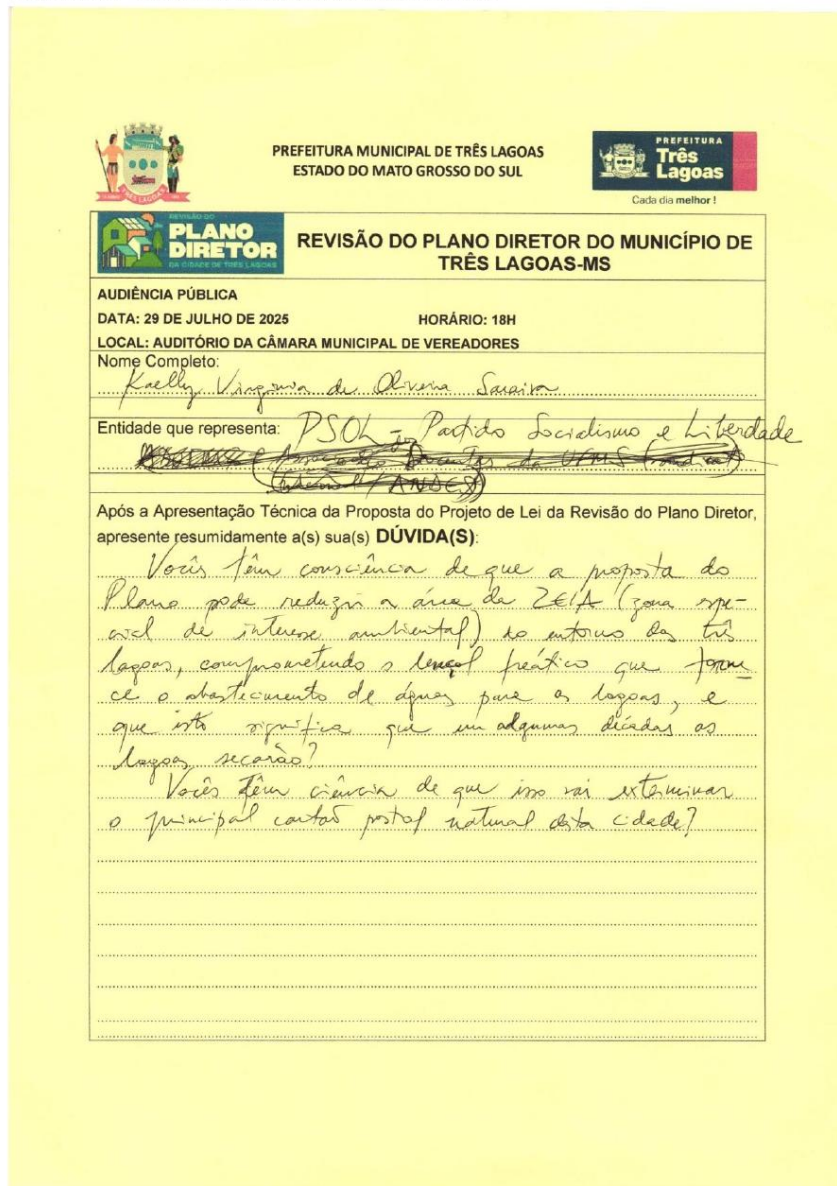 PREFEITURA MUNICIPAL DE TRÊS LAGOAS
ESTADO DO MATO GROSSO DO SUL
PREFEITURA
Três
Lagoas
Cada dia melhor !
REVISÃO DO
PLANO
DIRETOR
DA CIDADE DE TRÊS LAGOAS
REVISÃO DO PLANO DIRETOR DO MUNICÍPIO DE
TRÊS LAGOAS-MS
AUDIÊNCIA PÚBLICA
DATA: 29 DE JULHO DE 2025 HORÁRIO: 18H
LOCAL: AUDITÓRIO DA CÂMARA MUNICIPAL DE VEREADORES
Nome Completo:
Kaelly Virginia de Oliveira Saraiva
Entidade que representa: PSOL - Partido Socialismo e Liberdade
Após a Apresentação Técnica da Proposta do Projeto de Lei da Revisão do Plano Diretor,
apresente resumidamente a(s) sua(s) DÚVIDA(S):
Vocês têm consciência de que a proposta do
Plano pode reduzir a área da ZEIA (zona espe-
cial de interesse ambiental) no entorno das três
lagoas, comprometendo o lençol freático que forne-
ce o abastecimento de águas para as lagoas, e
que isto significa que em algumas décadas as
lagoas secarão?
Vocês têm ciência de que isso vai exterminar
o principal cartão postal natural desta cidade?